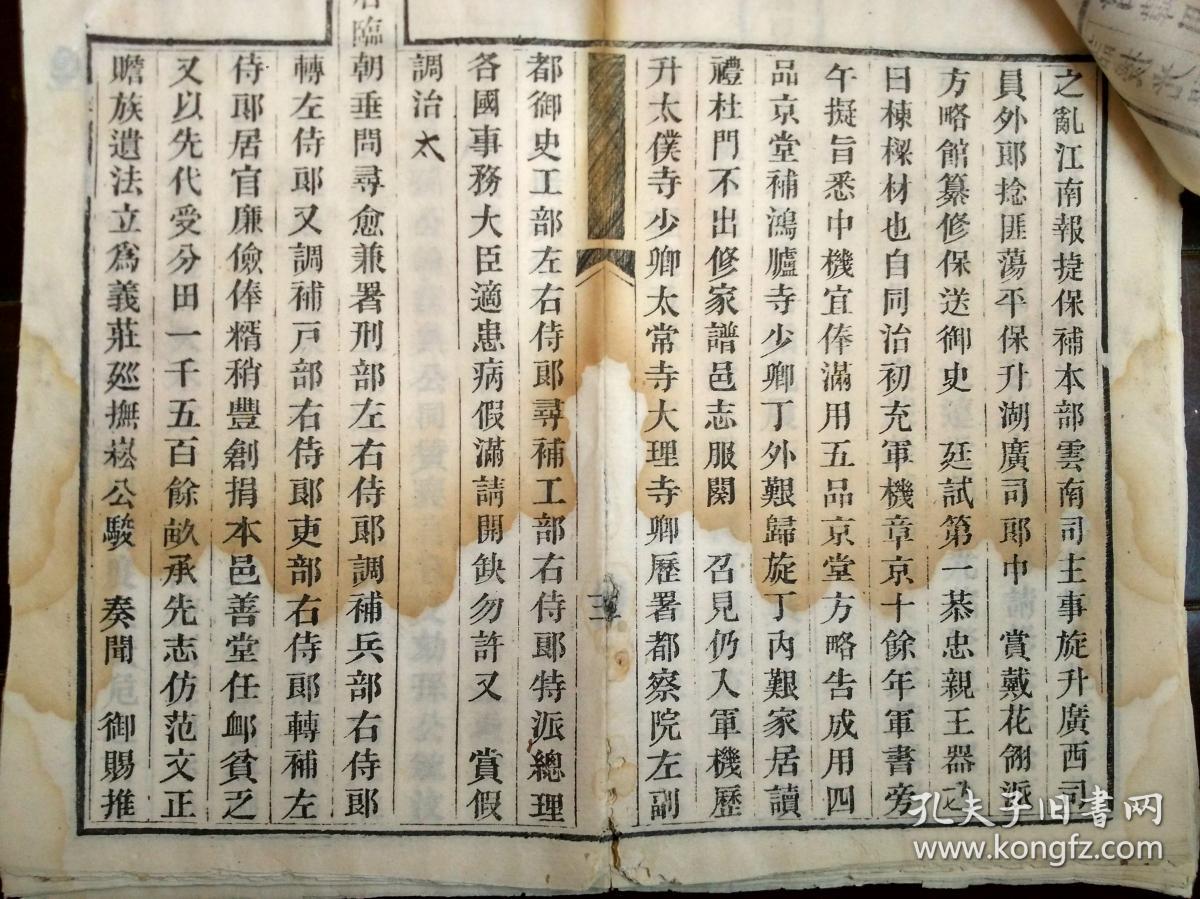 之亂江南報捷保補本部雲南司主事旋升廣西司
員外郎捻匪蕩平保升湖廣司郎中 賞戴花翎派
方略館纂修保送御史 廷試第一恭忠親王器之
曰棟樑材也自同治初充軍機章京十餘年軍書旁
午擬旨悉中機宜俸滿用五品京堂方略告成用四
品京堂補鴻臚寺少卿丁外艱歸旋丁內艱家居讀
禮杜門不出修家譜邑志服闋 召見仍入軍機歷
升太僕寺少卿太常寺大理寺卿歷署都察院左副
三
都御史工部左右侍郎尋補工部右侍郎特派總理
各國事務大臣適患病假滿請開缺勿許又 賞假
調治太
后臨朝垂問尋愈兼署刑部左右侍郎調補兵部右侍郎
轉左侍郎又調補戶部右侍郎吏部右侍郎轉補左
侍郎居官廉儉俸糈稍豐創捐本邑善堂任卹貧乏
又以先代受分田一千五百餘畝承先志仿范文正
贍族遺法立為義莊廵撫崧公駿 奏聞 御賜推
孔夫子旧书网
www.kongfz.com